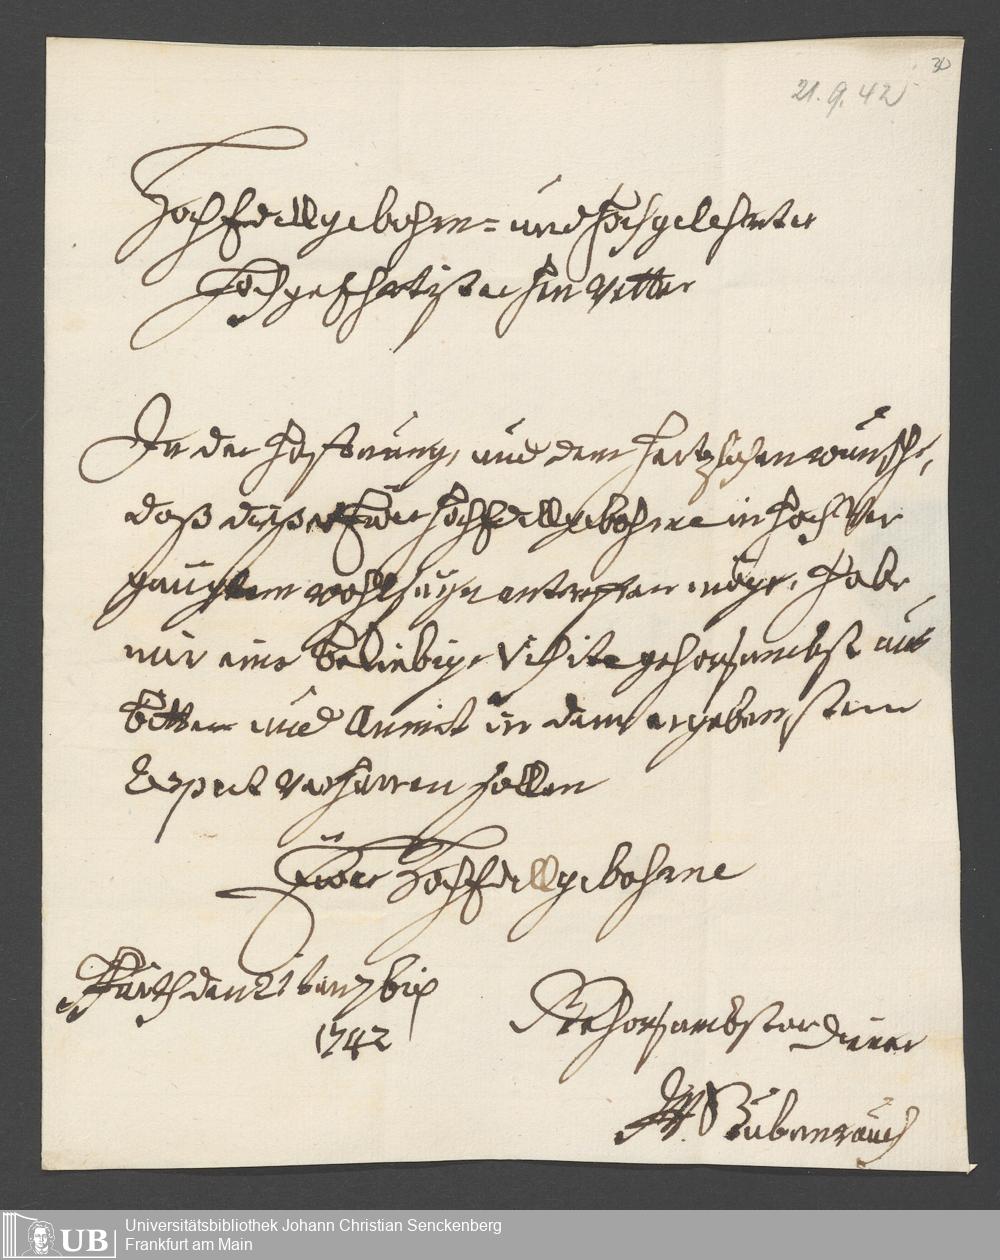 30
21. 9. 42
HochEdellgebohrne- und Hochgelehrter
Hochgeehrtister Herr Vetter
In der Hoffnung, und dem hertzlichen wunsche,
daß dießes Ewer HochEdellgebohrne in Hoch Ver
gnügtem wohlseyn antreffen möge, habe
mir eine beliebige Visite gehorsambst aus
bitten und Anmit in dem ergebenstem
Respect verharren sollen
Ewer HochEdellgebohrne
Fürth den 21ten 7bris
1742
Gehorsambster Diener
Stubenrauch
UB
Universitätsbibliothek Johann Christian Senckenberg
Frankfurt am Main